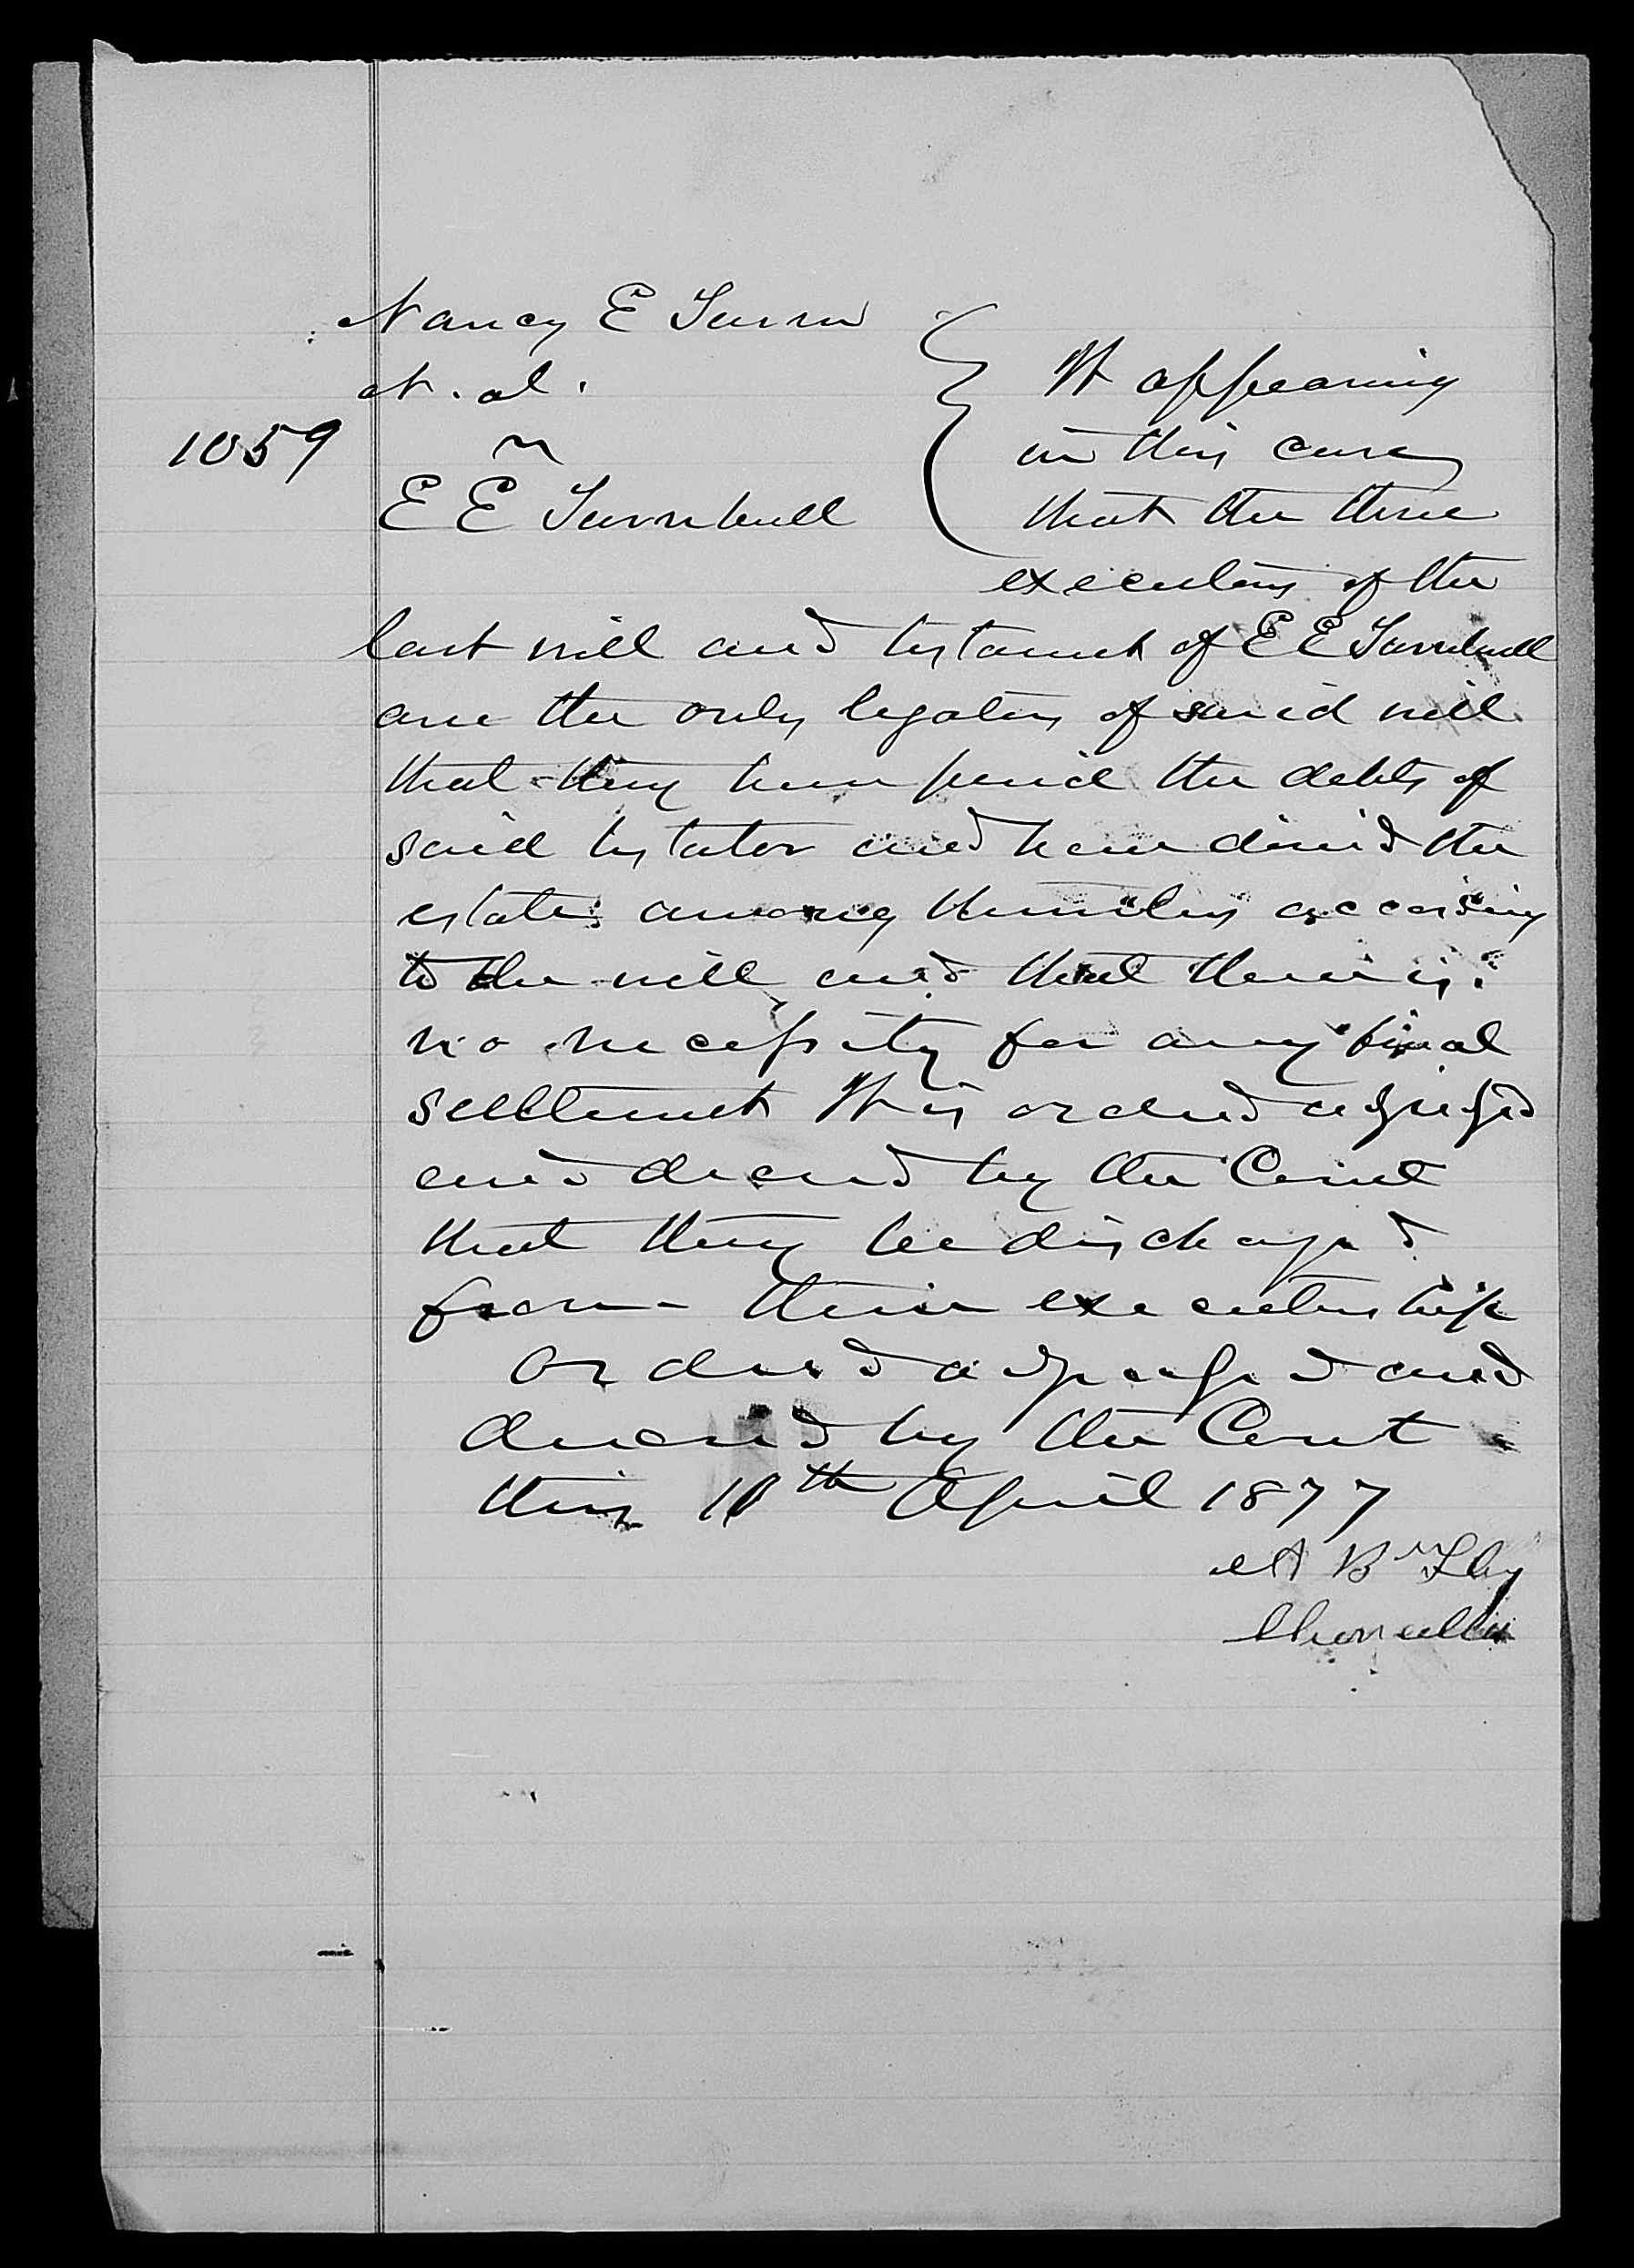 Nancy E Turn
et. al.
1059
vs
E E Turnbull
It appearing
in this case
that the three
executors of the
last will and testament of E E Turnbull
are the only legatees of said will
that they have paid the debts of
said testator and have divid the
estate among themselves according
to the will and that there is
no necessity for any final
settlement It is ordered adjudged
and decreed by the Court
that they be discharged
from their executorship
Ordered adjudged and
decreed by the Court
this 10th April 1877
Chancellor